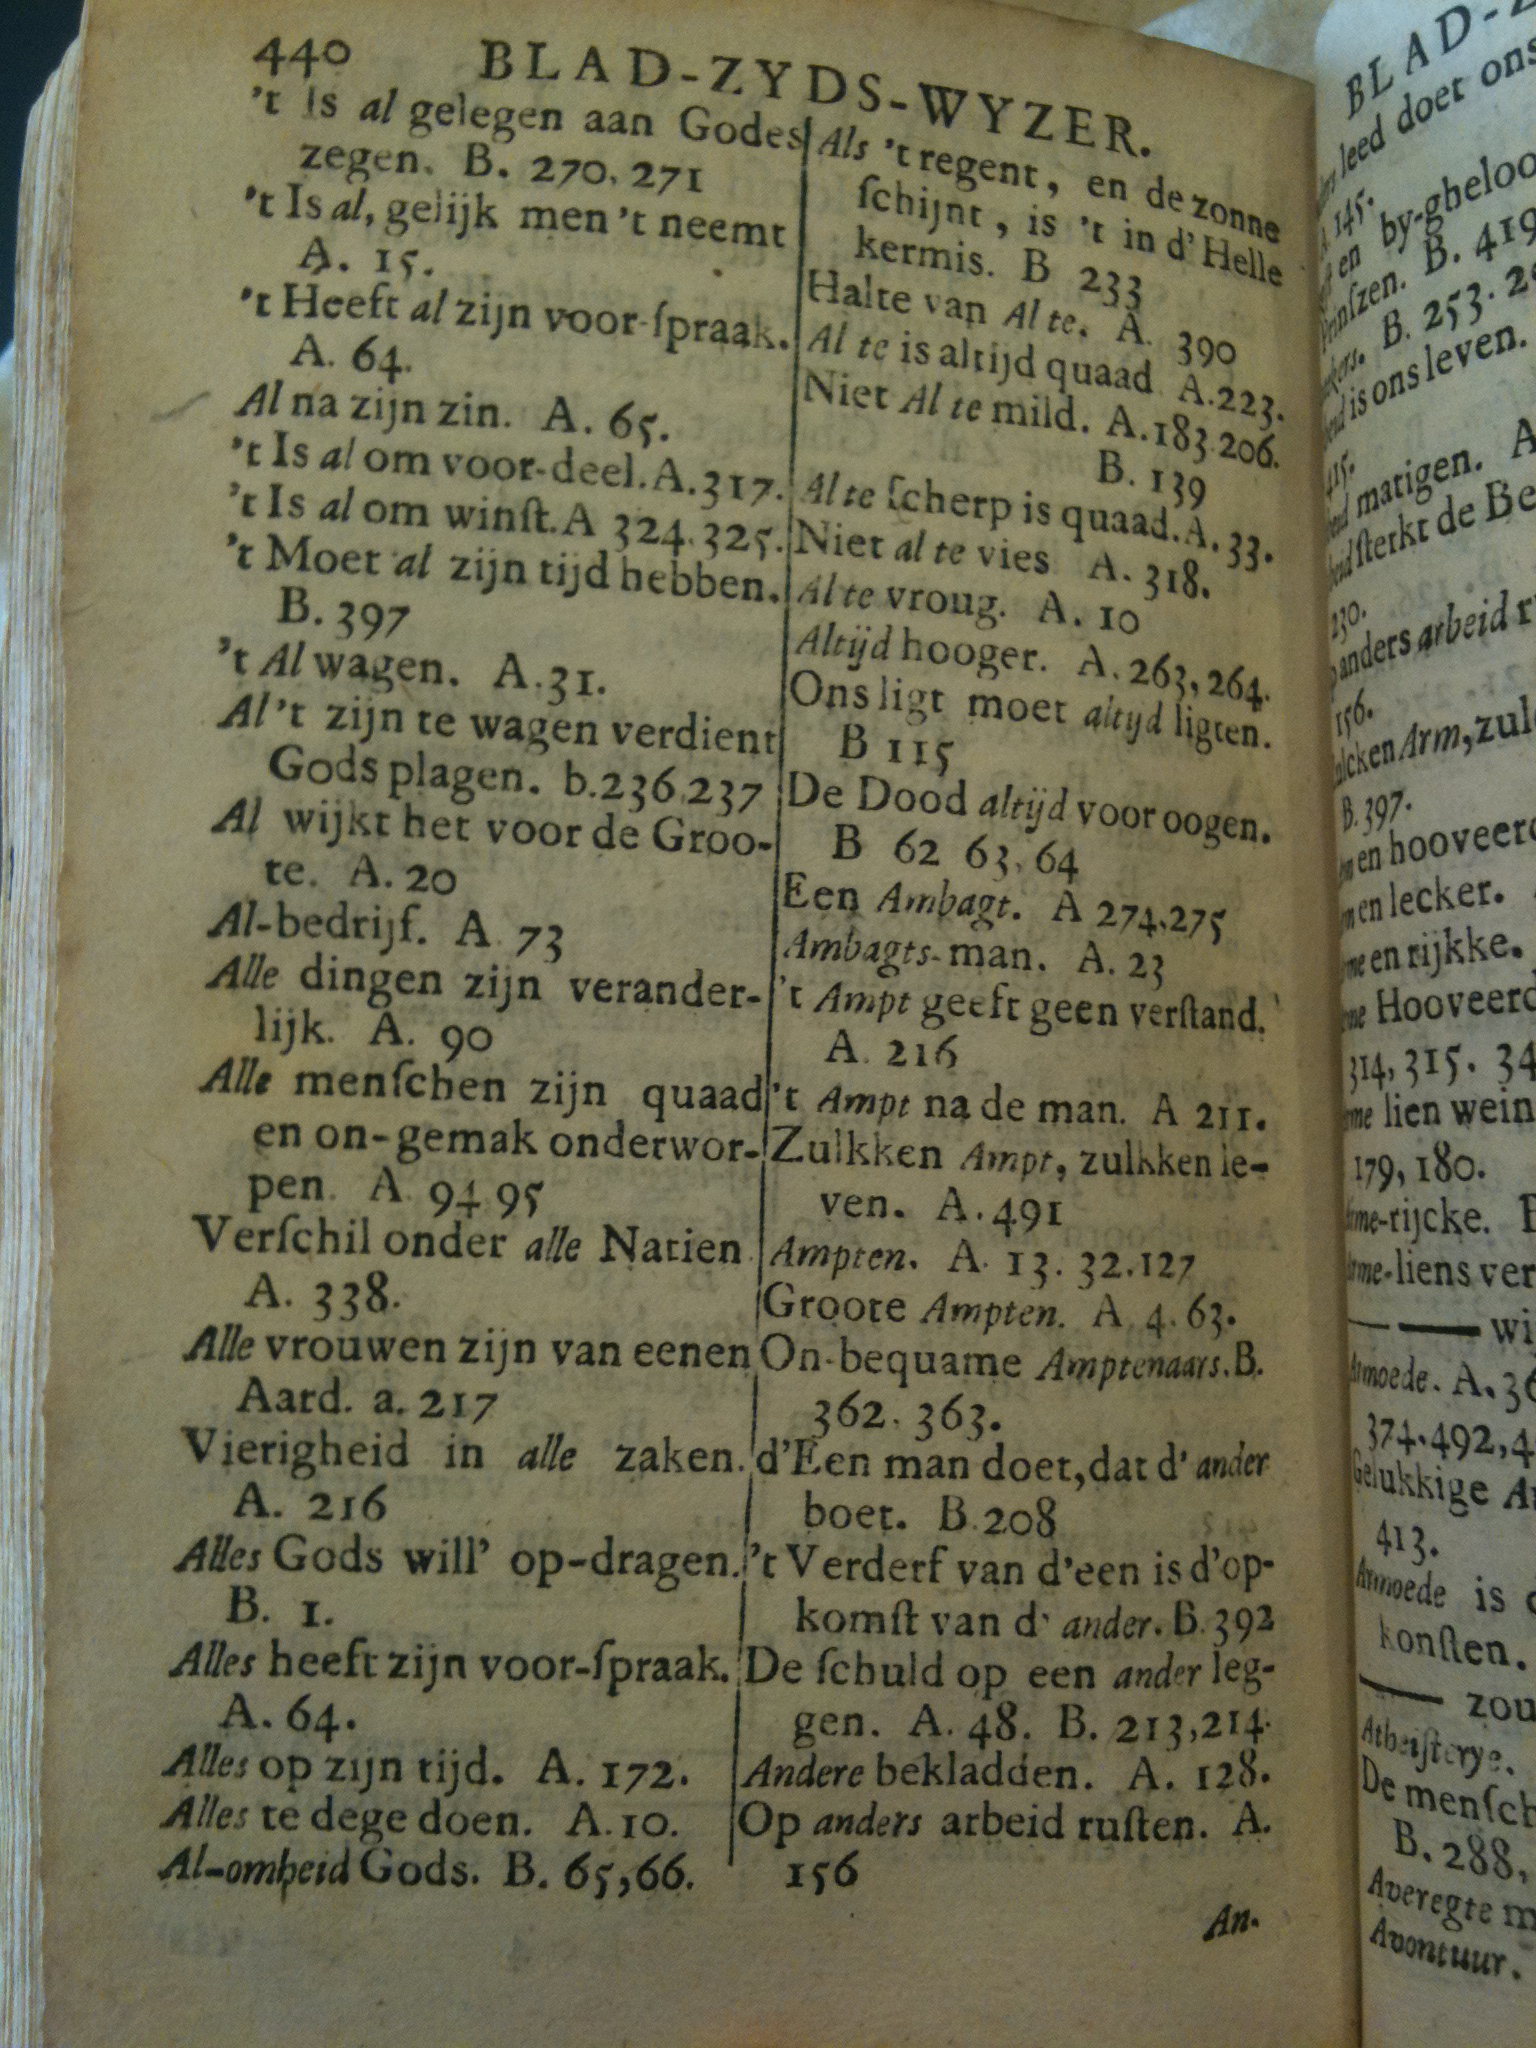 440 BLAD-ZYDS-WYZER.
't Is al gelegen aan Godes
zegen. B. 270. 271
't Is al, gelijk men 't neemt
A. 15.
't Heeft al zijn voor-ſpraak.
A. 64.
Al na zijn zin. A. 65.
't Is al om voor-deel. A. 317.
't Is al om winſt. A 324. 325.
't Moet al zijn tijd hebben.
B. 397
't Al wagen. A. 31.
Al 't zijn te wagen verdient
Gods plagen. b. 236. 237
Al wijkt het voor de Groo-
te. A. 20
Al-bedrijf. A 73
Alle dingen zijn verander-
lijk. A. 90
Alle menſchen zijn quaad
en on-gemak onderwor-
pen. A 94 95
Verſchil onder alle Natien
A. 338.
Alle vrouwen zijn van eenen
Aard. a. 217
Vierigheid in alle zaken.
A. 216
Alles Gods will' op-dragen.
B. 1.
Alles heeft zijn voor-ſpraak.
A. 64.
Alles op zijn tijd. A. 172.
Alles te dege doen. A. 10.
Al-omheid Gods. B. 65,66.
Als 't regent, en de zonne
ſchijnt, is 't in d' Helle
kermis. B 233
Halte van Al te. A. 390
Al te is altijd quaad A. 223.
Niet Al te mild. A. 183. 206.
B. 139
Al te ſcherp is quaad. A. 33.
Niet al te vies A. 318.
Al te vroug. A. 10
Altijd hooger. A. 263, 264.
Ons ligt moet altijd ligten.
B 115
De Dood altijd voor oogen.
B 62 63. 64
Een Ambagt. A 274.275
Ambagts-man. A. 23
't Ampt geeft geen verſtand.
A. 216
't Ampt na de man. A 211.
Zulkken Ampt, zulkken le-
ven. A. 491
Ampten. A. 13. 32. 127
Groote Ampten. A 4. 63.
On-bequame Amptenaars. B.
362. 363.
d'Een man doet, dat d' ander
boet. B. 208
't Verderf van d'een is d'op-
komſt van d' ander. B. 392
De ſchuld op een ander leg-
gen. A. 48. B. 213,214.
Andere bekladden. A. 128.
Op anders arbeid ruſten. A.
156
An-
BLAD-
leed doet ons
145.
en by-gheloo
B. 419
B. 253.
is ons leven.
415.
matigen. A
ſterkt de Be
230.
anders arbeid
156.
Arm, zul
B. 397.
en hooveer
en lecker.
en rijkke.
Hooveer
314, 315. 34
lien wein
179, 180.
-rijcke.
-liens ver
wi
Armoede. A. 36
374. 492, 4
Gelukkige
413.
Armoede is
konſten.
zou
Atheiſterye.
De menſch
B. 288,
Averegte m
Avontuur.